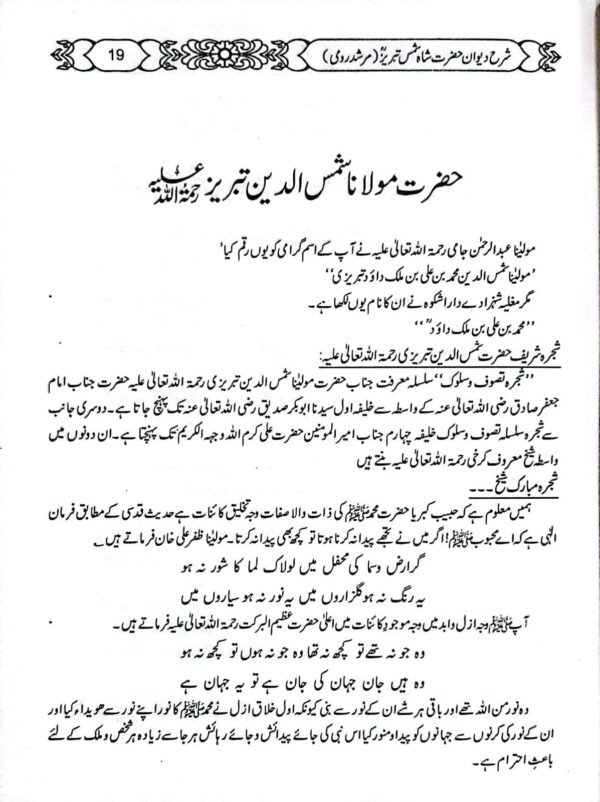 شرح دیوان حضرت شاہ شمس تبریزؒ (مرشد رومی)
19
حضرت مولانا شمس الدین تبریز رحمۃ اللہ علیہ
مولینا عبدالرحمٰن جامی رحمۃ اللہ تعالیٰ علیہ نے آپ کے اسم گرامی کو یوں رقم کیا'
'مولینا شمس الدین محمد بن علی بن ملک داؤد تبریزی''
مگر مغلیہ شہزادے دارا شکوہ نے ان کا نام یوں لکھا ہے۔
''محمد بن علی بن ملک داؤدؒ''
شجرہ شریف حضرت شمس الدین تبریزی رحمۃ اللہ تعالیٰ علیہ:
''شجرہ تصوف و سلوک'' سلسلہ معرفت جناب حضرت مولینا شمس الدین تبریزی رحمۃ اللہ تعالیٰ علیہ حضرت جناب امام
جعفر صادق رضی اللہ تعالیٰ عنہ کے واسطہ سے خلیفہ اول سیدنا ابوبکر صدیق رضی اللہ تعالیٰ عنہ تک پہنچ جاتا ہے۔ دوسری جانب
سے شجرہ سلسلہ تصوف و سلوک خلیفہ چہارم جناب امیر المومنین حضرت علی کرم اللہ وجہہ الکریم تک پہنچتا ہے۔ ان دونوں میں
واسطہ شیخ معروف کرخی رحمۃ اللہ تعالیٰ علیہ بنتے ہیں
شجرہ مبارک شیخ ۔۔۔
ہمیں معلوم ہے کہ حبیب کبریا حضرت محمد ﷺ کی ذات والا صفات وجہ تخلیق کائنات ہے حدیث قدسی کے مطابق فرمان
الٰہی ہے کہ اے محبوب ﷺ! اگر میں نے تجھے پیدا نہ کرنا ہوتا تو کچھ بھی پیدا نہ کرتا۔ مولینا ظفر علی خان فرماتے ہیں
گر ارض و سما کی محفل میں لولاک لما کا شور نہ ہو
یہ رنگ نہ ہو گلزاروں میں یہ نور نہ ہو سیاروں میں
آپ ﷺ وجہ ازل و ابد میں وجہ موجود کائنات میں اعلیٰ حضرت عظیم البرکت رحمۃ اللہ تعالیٰ علیہ فرماتے ہیں۔
وہ جو نہ تھے تو کچھ نہ تھا وہ جو نہ ہوں تو کچھ نہ ہو
وہ ہیں جان جہان کی جان ہے تو یہ جہان ہے
وہ نور من اللہ تھے اور باقی ہر شے ان کے نور سے بنی کیونکہ اول خلاق ازل نے محمد ﷺ کا نور اپنے نور سے ھویداء کیا اور
ان کے نور کی کرنوں سے جہانوں کو پیدا و منور کیا اس نبی کی جائے پیدائش و جائے رہائش ہر جا سے زیادہ ہر شخص و ملک کے لئے
باعثِ احترام ہے۔